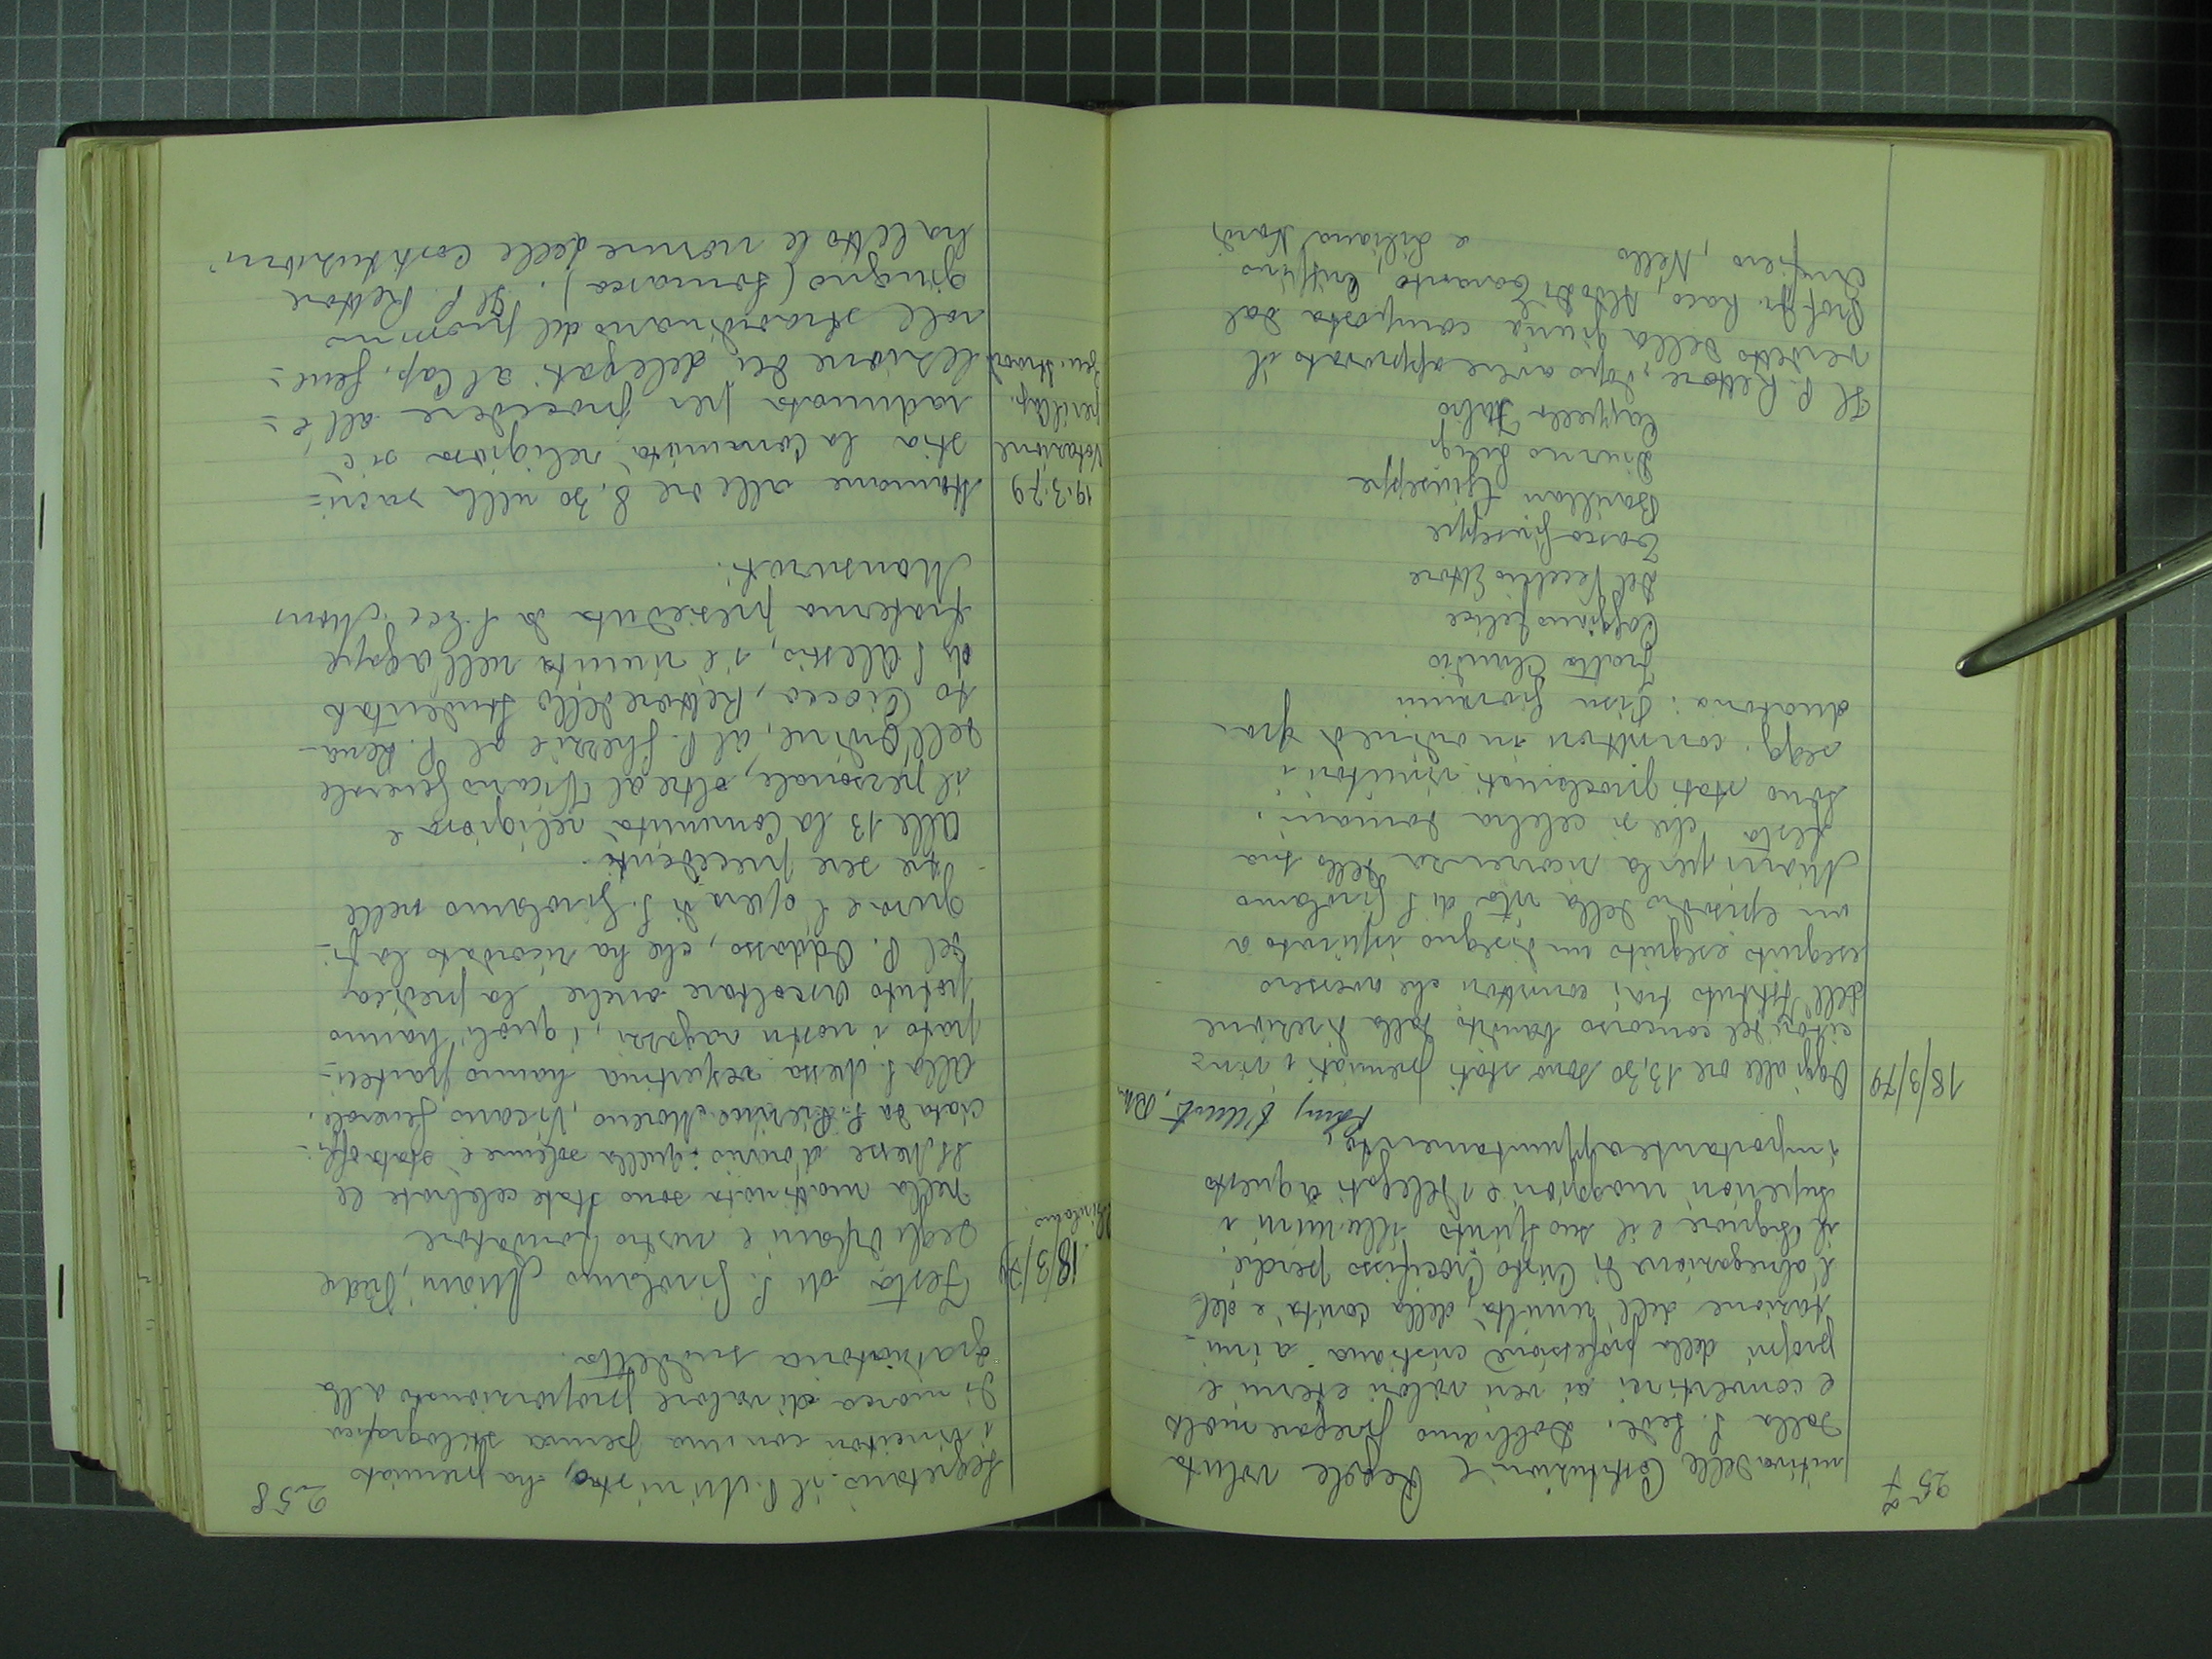 257
nitiva delle Costituzioni e Regole voluta
dalla S. Sede. Dobbiamo pregare molto
e convertirci ai veri valori eterni e
propri della professione cristiana a imi-
tazione dell'umiltà, della carità e del-
l'abnegazione di Cristo Crocifisso perché
il Signore e il suo Spirito illumini i
superiori maggiori e i delegati a questo
importante appuntamento.
18/3/79
Oggi alle ore 13,30 sono stati premiati i vin=
citori del concorso bandito dalla Direzione
dell'Istituto tra i convittori che avessero
eseguito eseguito un disegno ispirato a
un episodio della vita di S. Girolamo
Miani per la ricorrenza della sua
festa che si celebra domani.
Sono stati proclamati vincitori i
segg. convittori in ordine di gra-
duatoria: Pisu Giovanni
Fratta Claudio
Caffino Felice
Del Vecchio Ettore
Tasca Giuseppe
Barillari Giuseppe
Diurno Luigi
Cappella Italo
Il P. Rettore, dopo avere approvato il
verdetto della giuria composta dal
Prof. Di Taranto,
Nello e Liliana Nardi
258
Segretario il P. Ministro, ha premiato
i vincitori con una penna stilografica
di marca di valore proporzionato alla
graduatoria suddetta.
18/3/79
S. Girolamo
Festa di S. Girolamo Miani, Padre
degli Orfani e nostro fondatore
Nella mattinata sono state celebrate le
SS. Messe d'orario: quella solenne è stata offi-
ciata da P. Pierino Moreno, Vicario Generale.
Alla S. Messa vespertina hanno parteci-
pato i nostri ragazzi, i quali hanno
potuto ascoltare anche la predica
del P. Oddasso, che ha ricordato la fi-
gura e l'opera di S. Girolamo nelle
tre sere precedenti.
Alle 13 la Comunità religiosa e
il personale, oltre al Vicario Generale
dell'Ordine, al P. Ghezzi e al P. Rena-
to Ciocca, Rettore dello Studentato
di S. Alessio, s'è riunita nell'agape
fraterna presieduta da S. Ecc. Mons
19.3.79
Votazione
per il Cap.
Gen. straord.
Stamane alle ore 8,30 nella sacri=
stia la Comunità religiosa si è
radunata per procedere all'e=
lezione dei delegati al Cap. Gene=
rale straordinario del prossimo
giugno (Somasca). Il P. Rettore
ha letto le norme delle costituzioni